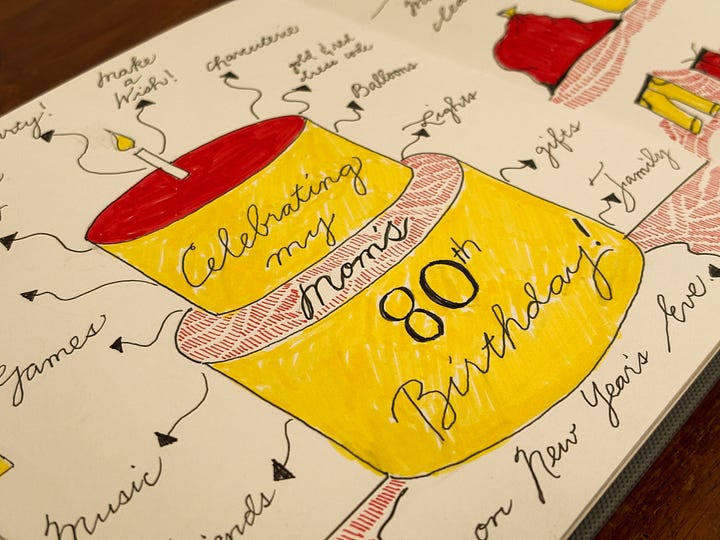 make
a
Wish!
charcuterie
gold & red
dress code
Balloons
Lights
gifts
Family
Celebrating
my
mom's
80th
Birthday!
on New Year's Eve.
Games
Music